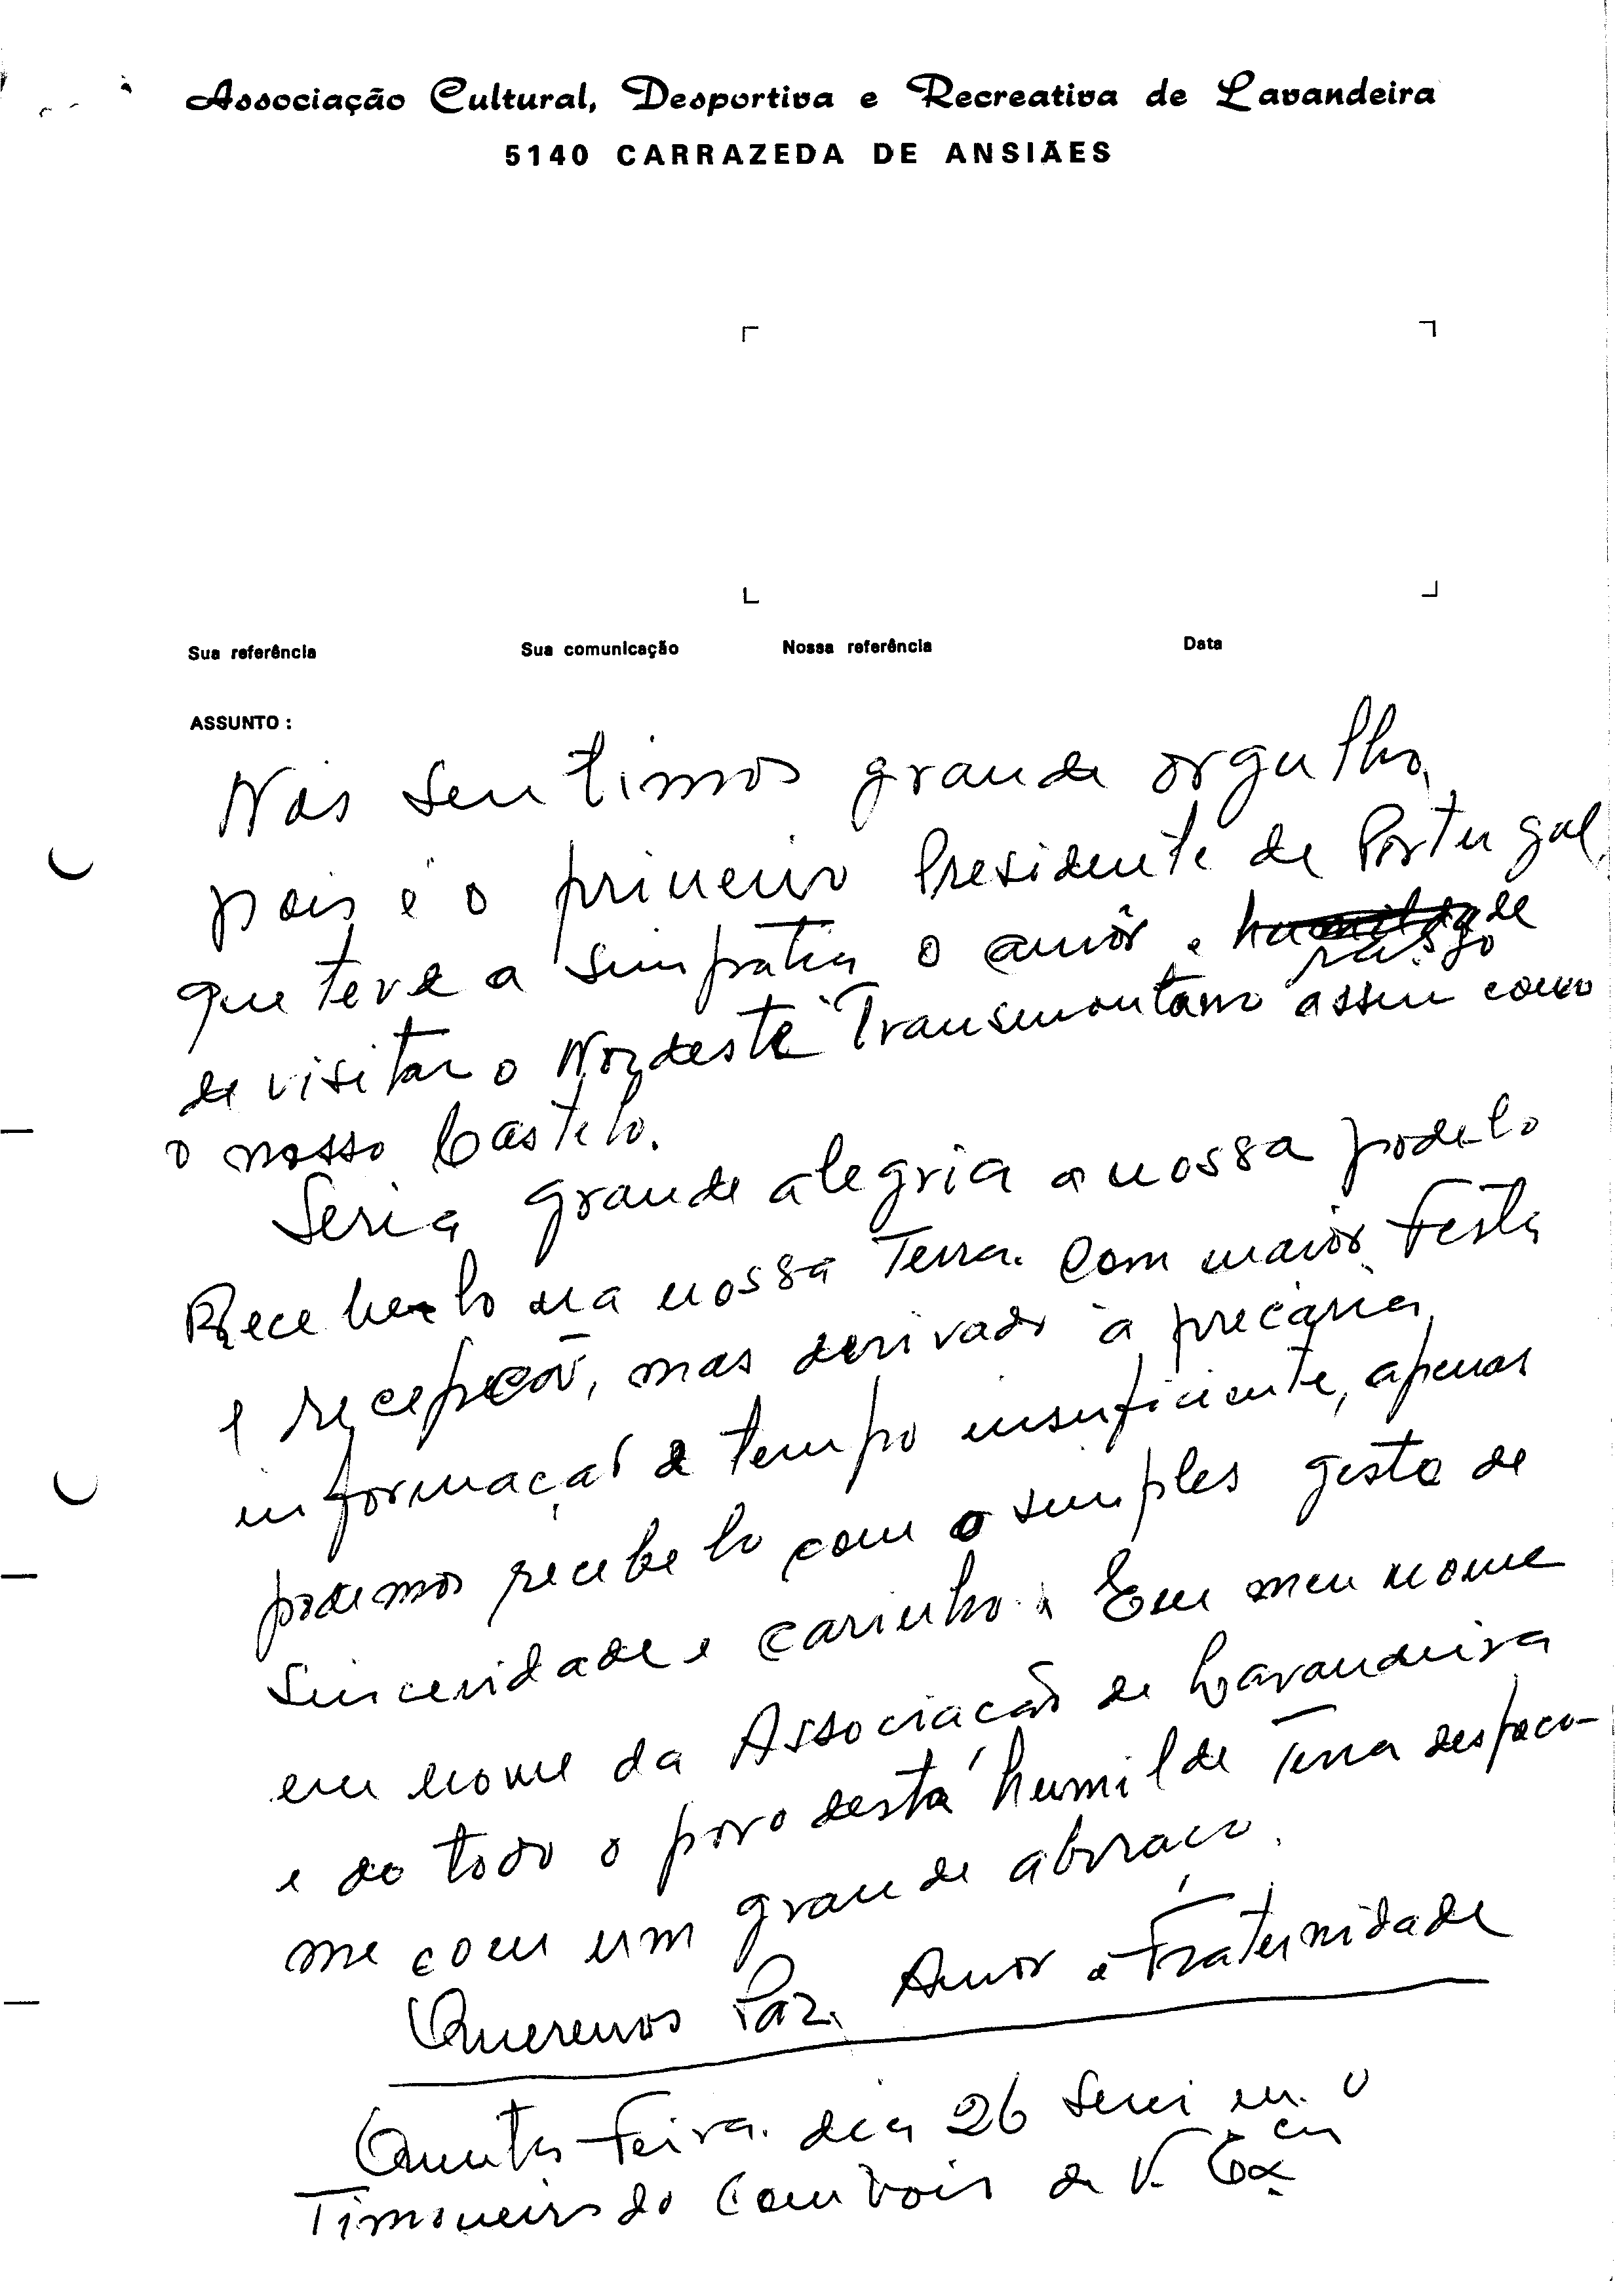 Associação Cultural, Desportiva e Recreativa de Lavandeira
5140 CARRAZEDA DE ANSIÃES
Sua referência Sua comunicação Nossa referência Data
ASSUNTO :
Nós sentimos grande orgulho,
pois é o primeiro Presidente de Portugal,
que teve a simpatia o amôr e
rasgo
de visitar o Nordeste Transmontano assim como
o nosso Castelo.
Seria grande alegria a nossa podelo
Recebe-lo na nossa Terra. Com maior Festa
e recepção, mas derivado à precária
informação e tempo insuficiente, apenas
podemos recebelo com o simples gesto de
Sinceridade e carinho. Em meu nome
em nome da Associação de Lavandeira
e do todo o povo desta humilde Terra despeço-
me com um grande abraço.
Queremos Paz, Amor e Fraternidade
Quinta-Feira. dia 26 serei eu. o
Timoneiro do Comboio de V. Exª